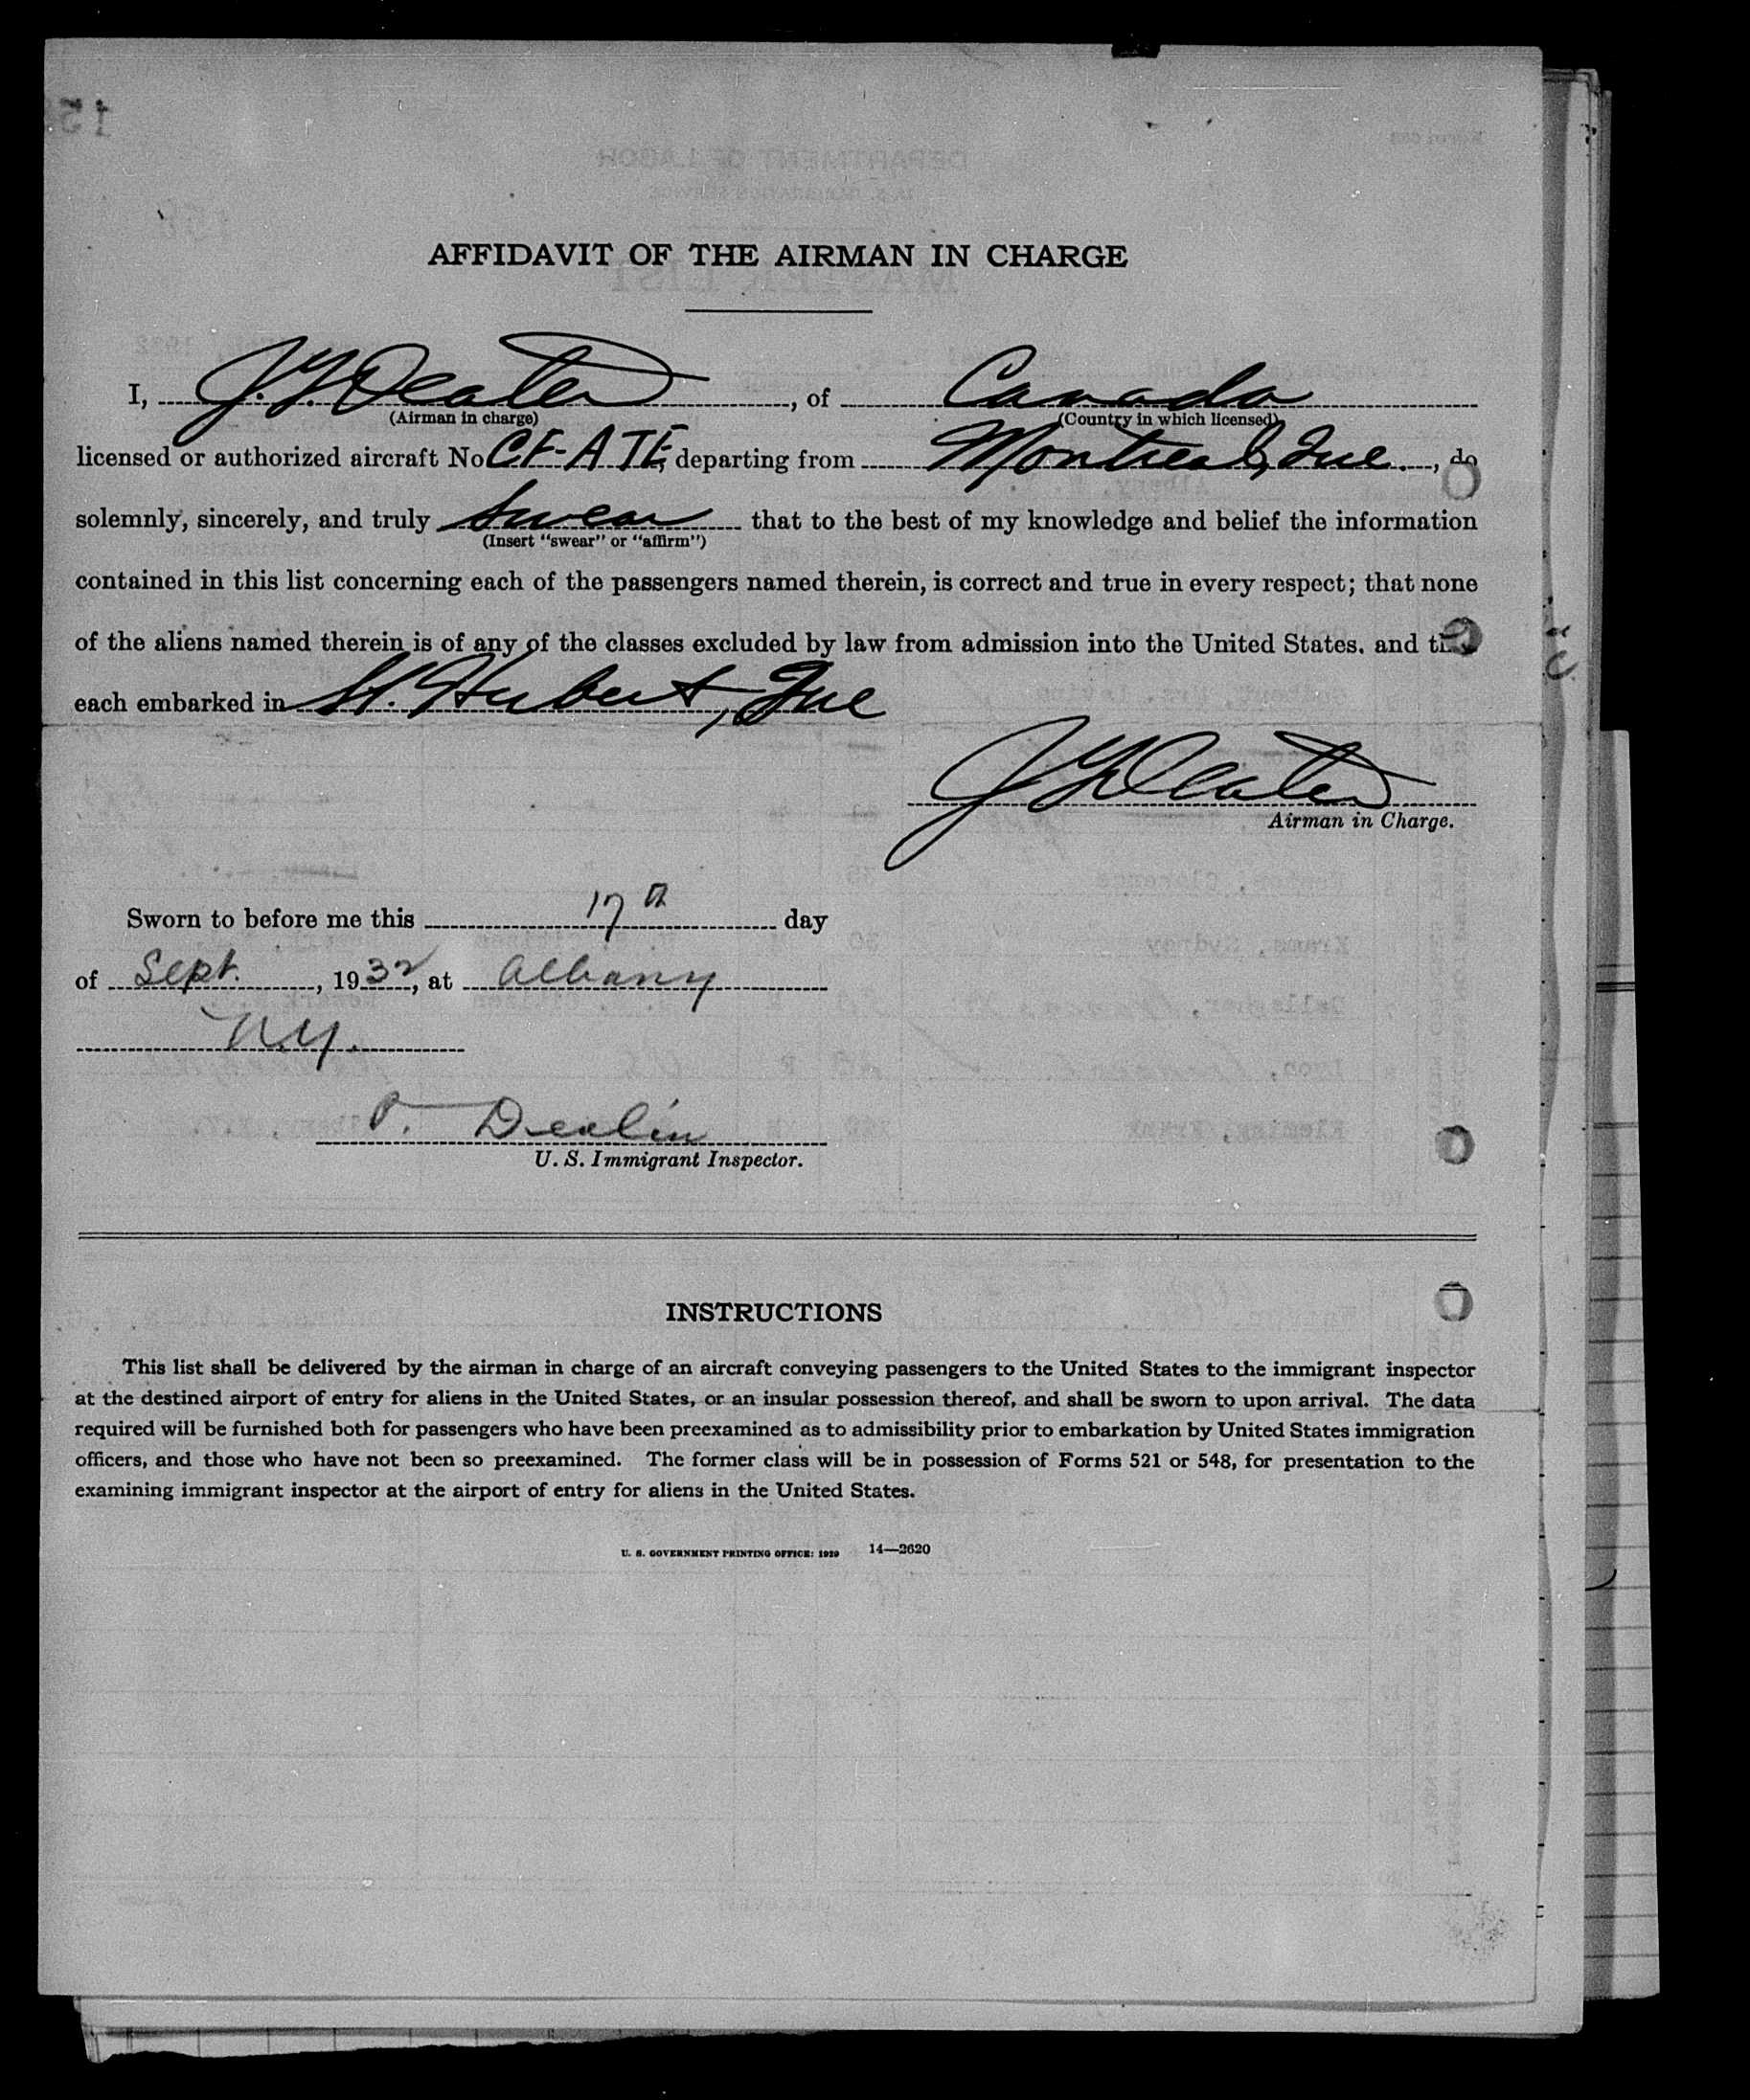 AFFIDAVIT OF THE AIRMAN IN CHARGE
I, J. Y. Deater, of Canada
(Airman in charge) (Country in which licensed)
licensed or authorized aircraft No CF-ATE, departing from Montreal, Que., do
solemnly, sincerely, and truly swear that to the best of my knowledge and belief the information
(Insert "swear" or "affirm")
contained in this list concerning each of the passengers named therein, is correct and true in every respect; that none
of the aliens named therein is of any of the classes excluded by law from admission into the United States. and
each embarked in St. Hubert, Que
J Y Deater
Airman in Charge.
Sworn to before me this 17th day
of Sept., 1932, at Albany
N.Y.
P. Devlin
U. S. Immigrant Inspector.
INSTRUCTIONS
This list shall be delivered by the airman in charge of an aircraft conveying passengers to the United States to the immigrant inspector
at the destined airport of entry for aliens in the United States, or an insular possession thereof, and shall be sworn to upon arrival. The data
required will be furnished both for passengers who have been preexamined as to admissibility prior to embarkation by United States immigration
officers, and those who have not been so preexamined. The former class will be in possession of Forms 521 or 548, for presentation to the
examining immigrant inspector at the airport of entry for aliens in the United States.
U. S. GOVERNMENT PRINTING OFFICE: 1929 14—2620